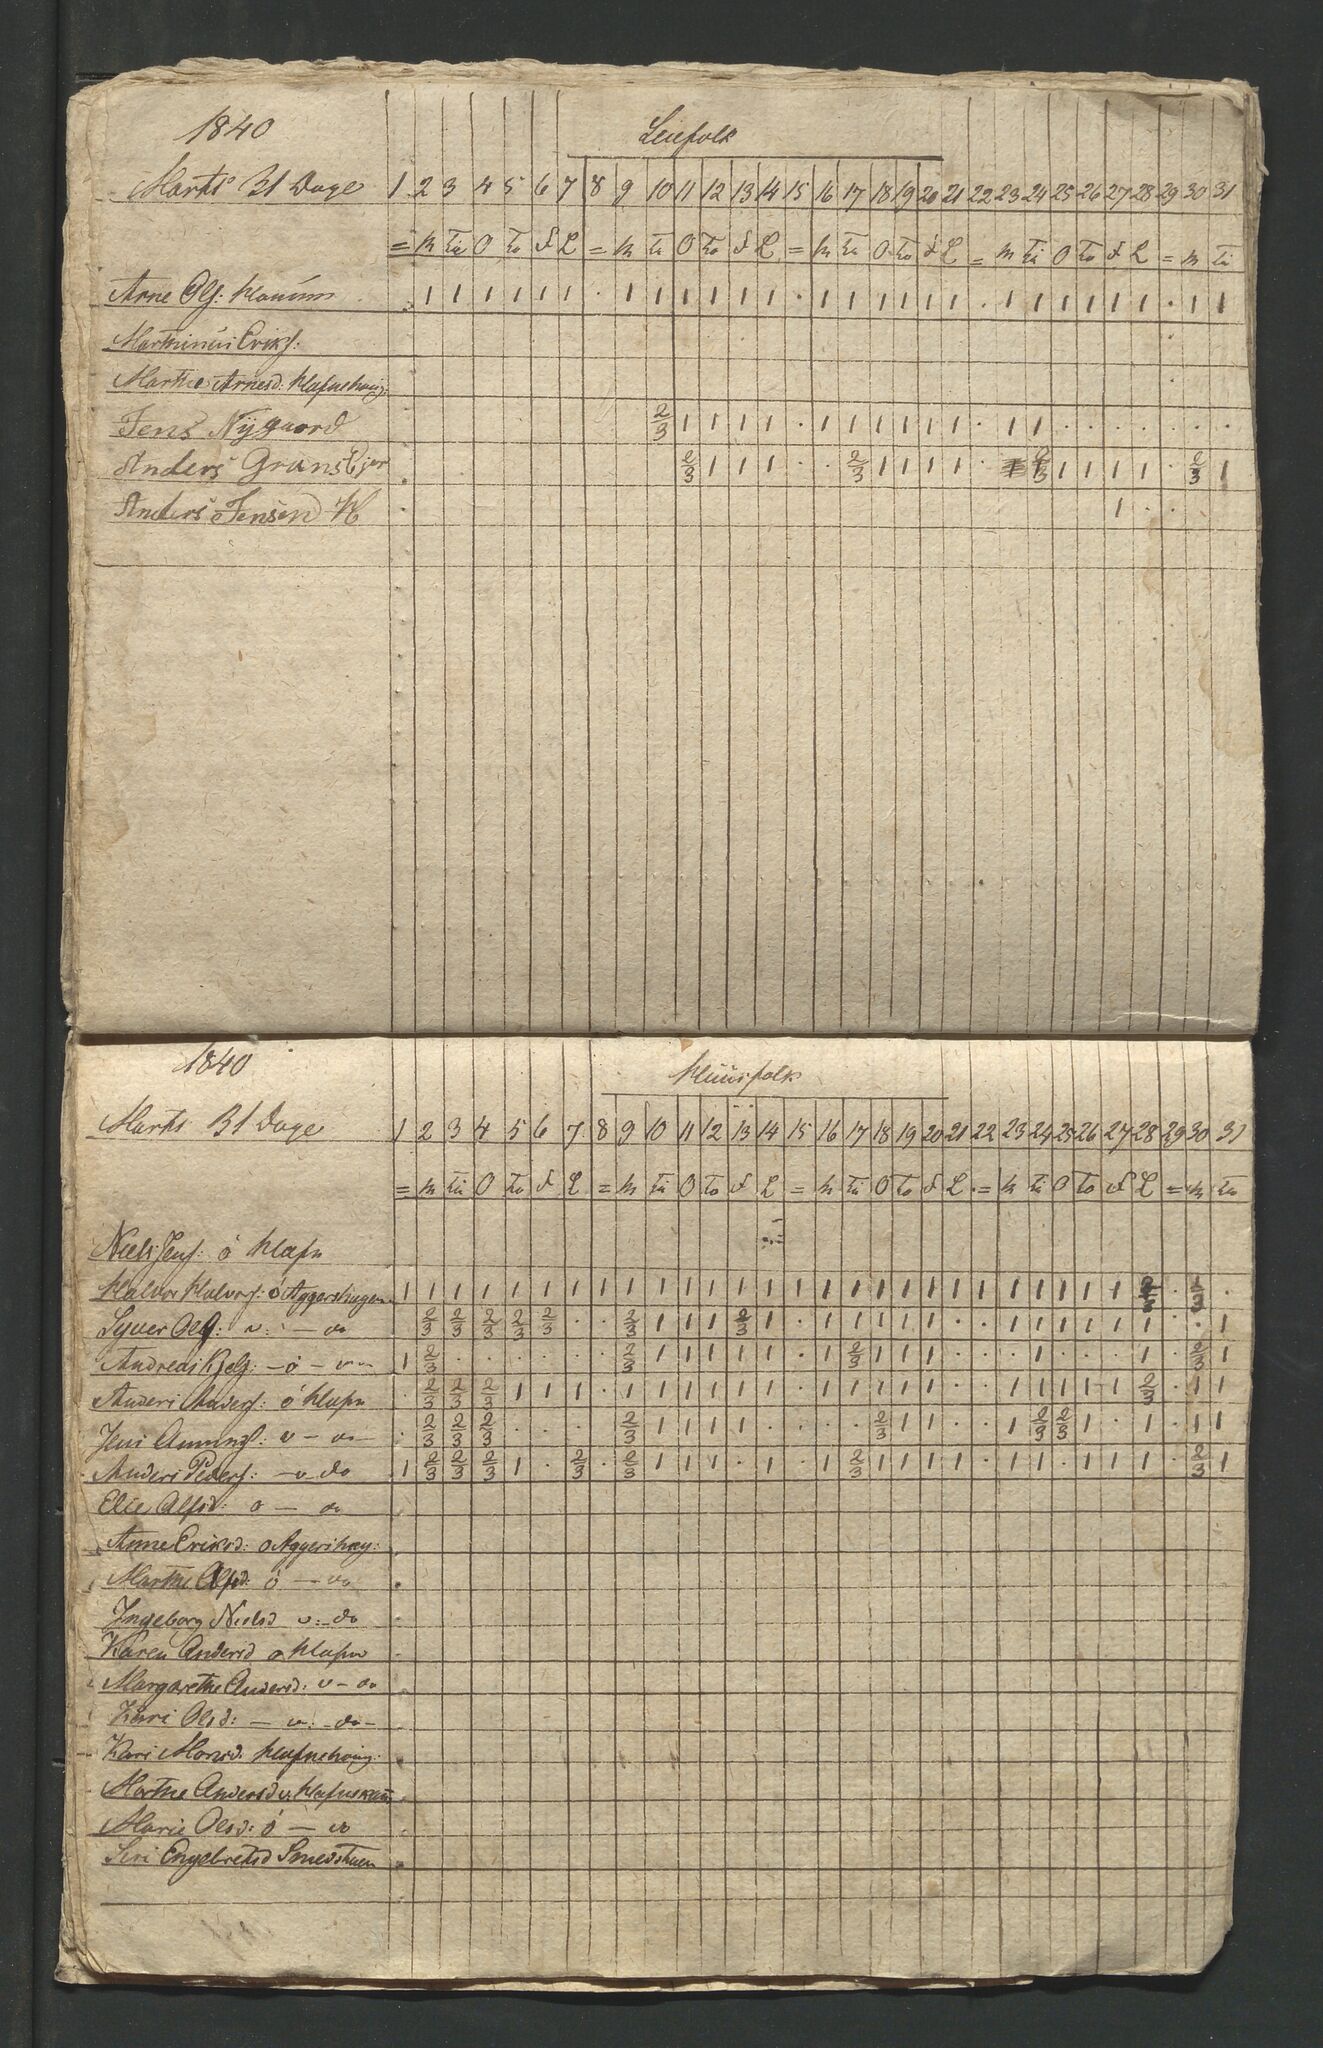 1840
Leiefolk
Marts 31 Dage 1 2 3 4 5 6 7 8 9 10 11 12 13 14 15 16 17 18 19 20 21 22 23 24 25 26 27 28 29 30 31
= M Ti O To F L = M Ti O To F L = M Ti O To F L = M Ti O To F L = M Ti
Arne Ols: . 1 1 1 1 1 1 . 1 1 1 1 1 1 . 1 1 1 1 1 1 . 1 1 1 1 1 1 . 1 1
Marthinus Eriks:
Marthe Arnesd:
Jens Nÿgaard 2/3 1 1 1 1 . 1 1 1 1 1 1 . 1 1 . . . . . . .
Anders 2/3 1 1 1 . . 2/3 1 1 1 1 . 2/3 1 1 1 1 . 2/3 1
Anders Jensen H 1 . .
1840
Huusfolk
Marts 31 Dage 1 2 3 4 5 6 7 8 9 10 11 12 13 14 15 16 17 18 19 20 21 22 23 24 25 26 27 28 29 30 31
= M Ti O To F L = M Ti O To F L = M Ti O To F L = M Ti O To F L = M Ti
Niels Jens: o
Halvor Halvors: o Aggershagen 1 1 1 1 1 1 1 1 1 1 1 1 1 1 1 1 1 1 1 1 1 1 1 1 1 1 1 . .
Syver Ols: o: - do 2/3 2/3 2/3 2/3 2/3 . . 2/3 1 1 1 2/3 1 . 1 1 1 1 1 1 . . 1 1 1 1 1 1 . . 1
Andreas - o - do 1 2/3 . . . . . . 2/3 1 1 1 1 1 . 1 2/3 1 1 1 . . . 1 . . . 1 . 2/3 1
Anders Anders: o . 2/3 2/3 2/3 1 1 1 . 1 1 1 1 1 1 . 1 1 1 1 1 . . 1 1 1 1 1 2/3 . 1 1
Jens o - do . 2/3 2/3 2/3 . . . . 2/3 1 1 1 1 1 . . . 2/3 1 1 . . 1 2/3 2/3 1 . 1 . 1 1
Anders Peders: - o do 1 2/3 2/3 2/3 1 . 2/3 . 2/3 1 1 1 . 1 . 1 2/3 1 1 1 1 . 1 1 . 1 1 1 . 2/3 1
Elie Alfsd: o - do
Anne Eriksd: o Aggershag:
Marthe Alfsd: o - do
Ingeborg Nielsd o: do
Karen Andersd o
Margarethe Andersd: o - do
Kari Olsd: - o: - do -
Kari
Marthe Andersd o:
Marie Olsd: o - do
Siri Engebretsd Smedstuen